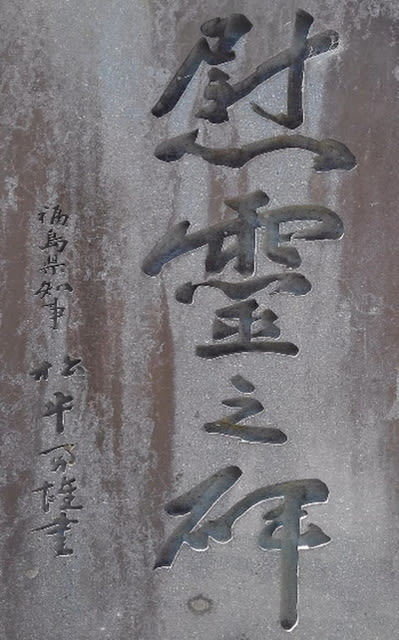 慰霊之碑
福島県知事 松平勇雄書